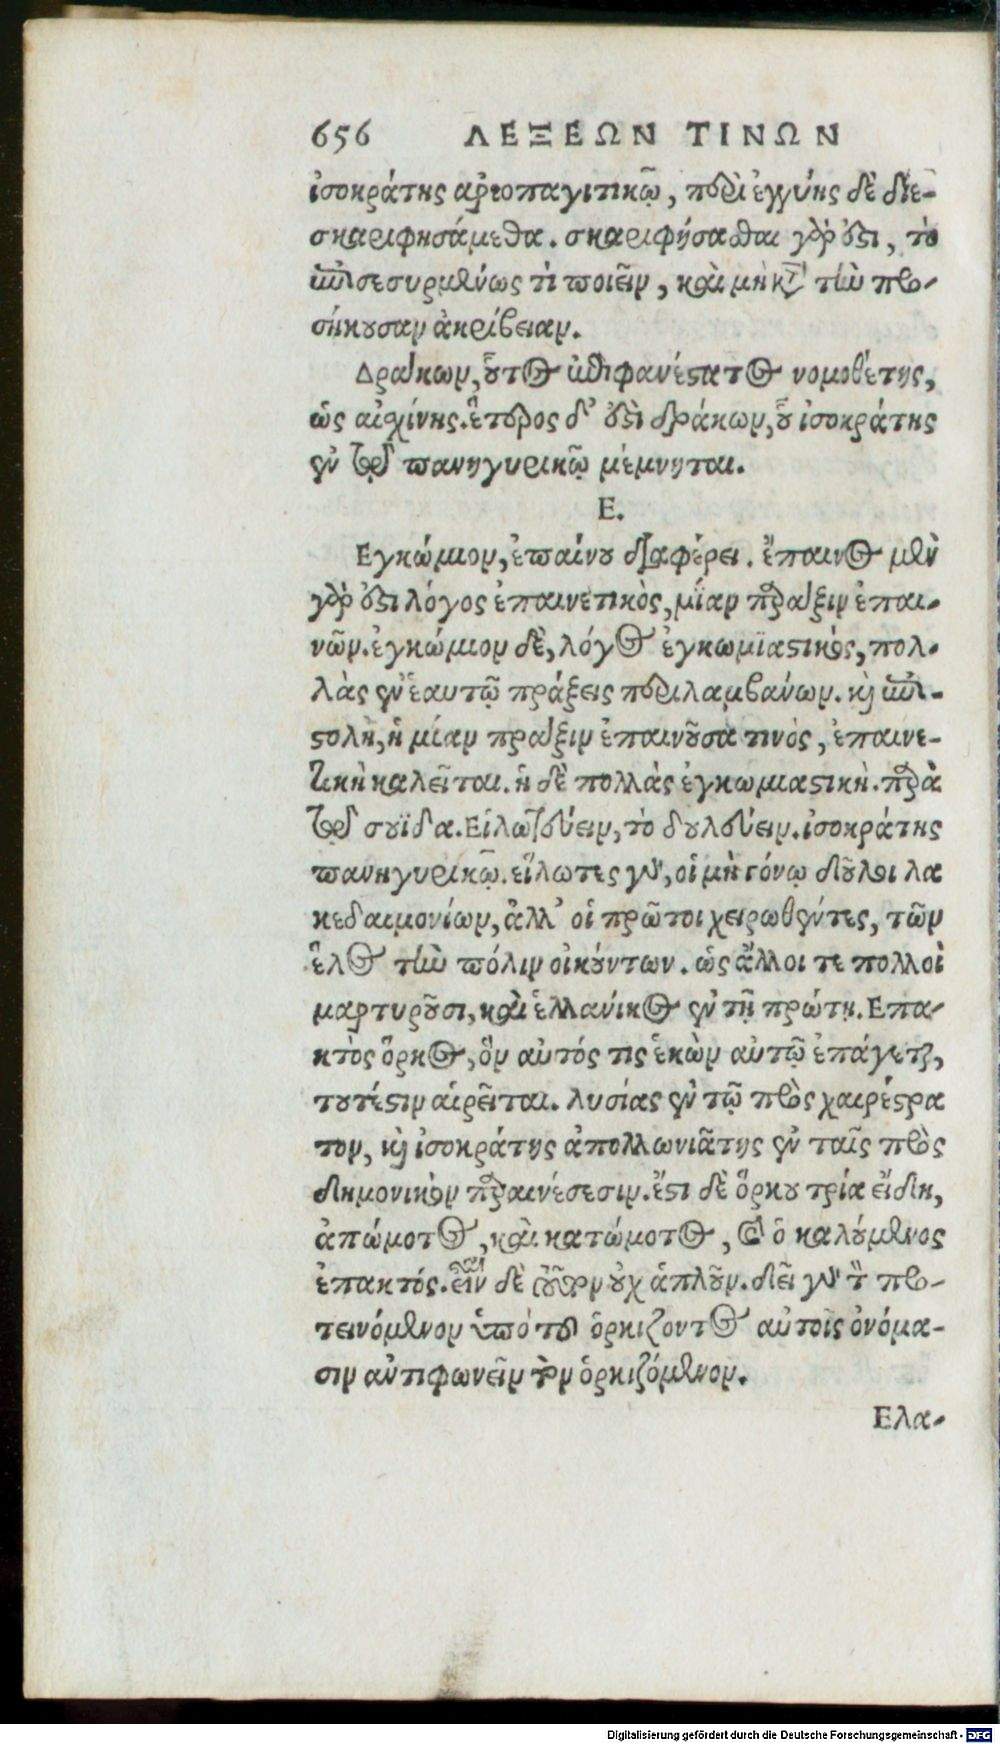 656 ΛΕΞΕΩΝ ΤΙΝΩΝ
ἰσοκράτης ἀρεοπαγιτικῷ, περὶ ἐγγύης δὲ διε-
σκαριφησάμεθα. σκαριφήσασθαι γάρ ἐστι, τὸ
ἐπισεσυρμένως τὶ ποιεῖν, καὶ μὴ κατὰ τὴν προ-
σήκουσαν ἀκρίβειαν.
Δράκων, οὗτος ἐπιφανέστατος νομοθέτης,
ὡς αἰσχίνης. ἕτερος δ' ἐστὶ δράκων, οὗ ἰσοκράτης
ἐν τῷ πανηγυρικῷ μέμνηται.
Ε.
Εγκώμιον, ἐπαίνου διαφέρει. ἔπαινος μὲν
γάρ ἐστι λόγος ἐπαινετικὸς, μίαν πρᾶξιν ἐπαι-
νῶν. ἐγκώμιον δὲ, λόγος ἐγκωμϊαστικός, πολ-
λὰς ἐν ἑαυτῷ πράξεις περιλαμβάνων. καὶ ἐπι-
στολὴ, ἡ μίαν πρᾶξιν ἐπαινοῦσα τινὸς, ἐπαινε-
τικὴ καλεῖται. ἡ δὲ πολλὰς ἐγκωμιαστικὴ. παρὰ
τῷ σουΐδα. Εἱλωτεύειν, τὸ δουλεύειν. ἰσοκράτης
πανηγυρικῷ. εἵλωτες γὰρ, οἱ μὴ γόνῳ δοῦλοι λα
κεδαιμονίων, ἀλλ' οἱ πρῶτοι χειρωθέντες, τῶν
ἕλος τὴν πόλιν οἰκούντων. ὡς ἄλλοι τε πολλοὶ
μαρτυροῦσι, καὶ ἑλλάνικος ἐν τῇ πρώτῃ. Επα-
κτὸς ὅρκος, ὃν αὐτός τις ἑκὼν αὑτῷ ἐπάγεται,
τουτέστιν αἱρεῖται. λυσίας ἐν τῷ πρὸς χαιρέστρα
τον, καὶ ἰσοκράτης ἀπολλωνιᾶτης ἐν ταῖς πρὸς
δημονικὸν παραινέσεσιν. ἔστι δὲ ὅρκου τρία εἴδη,
ἀπώμοτος, καὶ κατώμοτος, καὶ ὁ καλούμενος
ἐπακτός. εἶναι δὲ τοῦτον οὐχ ἁπλοῦν. δεῖ γὰρ τὸν προ-
τεινόμενον ὑπὸ τοῦ ὁρκίζοντος αὐτοῖς ὀνόμα-
σιν ἀντιφωνεῖν τὸν ὁρκιζόμενον.
Ελα-
Digitalisierung gefördert durch die Deutsche Forschungsgemeinschaft - DFG